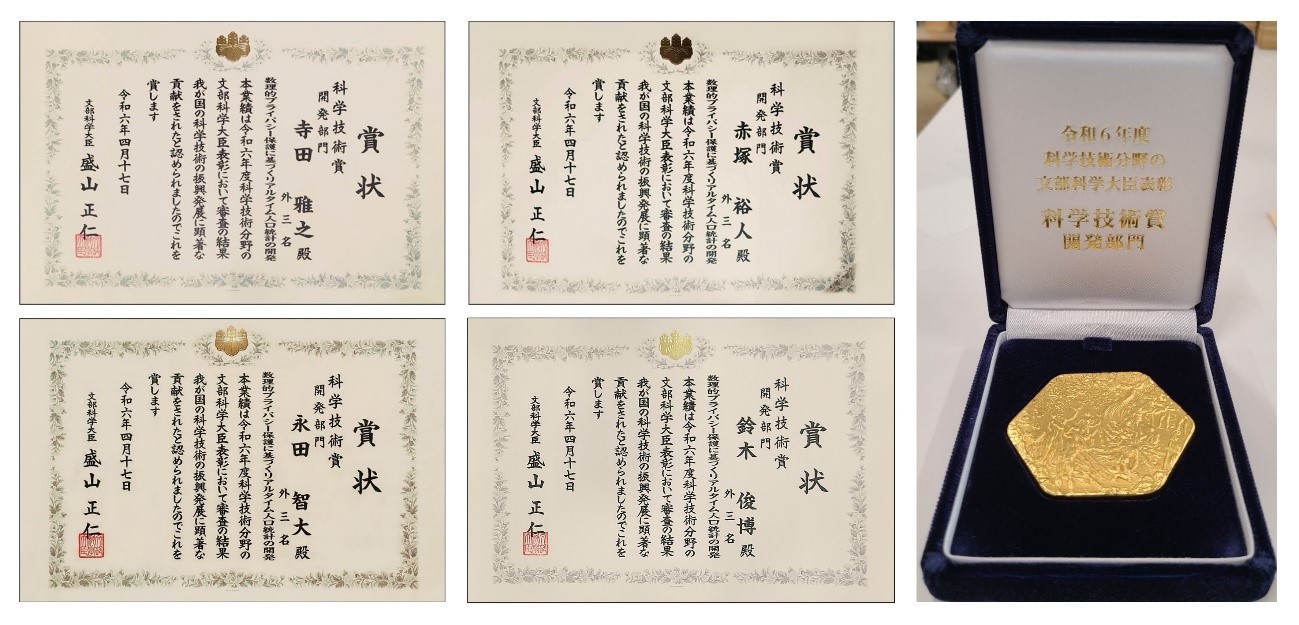 賞状
科学技術賞
開発部門
寺田 雅之 殿
外三名
数理的プライバシー保護に基づくリアルタイム人口統計の開発
本業績は令和六年度科学技術分野の
文部科学大臣表彰において審査の結果
我が国の科学技術の振興発展に顕著な
貢献をされたと認められましたのでこれを
賞します
令和六年四月十七日
文部科学大臣 盛山 正仁
賞状
科学技術賞
開発部門
赤塚 裕人 殿
外三名
数理的プライバシー保護に基づくリアルタイム人口統計の開発
本業績は令和六年度科学技術分野の
文部科学大臣表彰において審査の結果
我が国の科学技術の振興発展に顕著な
貢献をされたと認められましたのでこれを
賞します
令和六年四月十七日
文部科学大臣 盛山 正仁
賞状
科学技術賞
開発部門
永田 智大 殿
外三名
数理的プライバシー保護に基づくリアルタイム人口統計の開発
本業績は令和六年度科学技術分野の
文部科学大臣表彰において審査の結果
我が国の科学技術の振興発展に顕著な
貢献をされたと認められましたのでこれを
賞します
令和六年四月十七日
文部科学大臣 盛山 正仁
賞状
科学技術賞
開発部門
鈴木 俊博 殿
外三名
数理的プライバシー保護に基づくリアルタイム人口統計の開発
本業績は令和六年度科学技術分野の
文部科学大臣表彰において審査の結果
我が国の科学技術の振興発展に顕著な
貢献をされたと認められましたのでこれを
賞します
令和六年四月十七日
文部科学大臣 盛山 正仁
令和6年度
科学技術分野の
文部科学大臣表彰
科学技術賞
開発部門